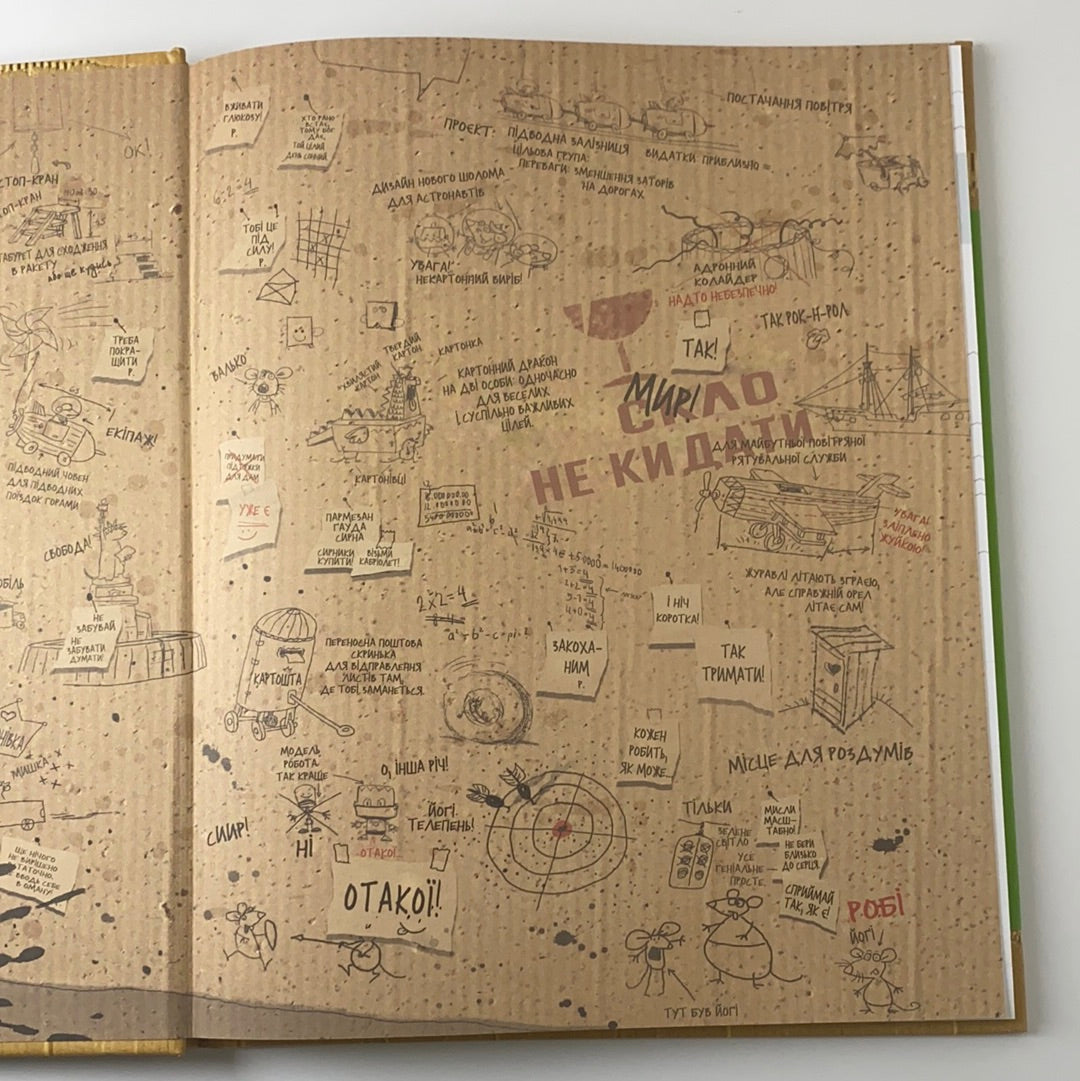 ОК!
СТОП-КРАН
ТАБУРЕТ ДЛЯ СХОДЖЕННЯ
В РАКЕТУ
ТРЕБА
ПОКРА-
ЩИТИ
Р.
ЕКІПАЖ!
ПІДВОДНИЙ ЧОВЕН
ДЛЯ ПІДВОДНИХ
ПОЇЗДОК ГОРАМИ
СВОБОДА!
НЕ
ЗАБУВАЙ
НЕ
ЗАБУВАТИ
ДУМАТИ!
МИШКА
ЩЕ НІЧОГО
НЕ ВИРІШЕНО
ОСТАТОЧНО.
ВВОДЬ СЕБЕ
В ОМАНУ!
ВЖИВАТИ
ГЛЮКОЗУ!
Р.
ХТО РАНО
ВСТАЄ,
ТОМУ БОГ
ДАЄ,
ТОЙ ЦІЛИЙ
ДЕНЬ СОННИЙ.
6-2=4
ТОБІ ЦЕ
ПІД
СИЛУ!
Р.
ПОСТАЧАННЯ ПОВІТРЯ
ПРОЄКТ: ПІДВОДНА ЗАЛІЗНИЦЯ ВИДАТКИ ПРИБЛИЗНО =
ЦІЛЬОВА ГРУПА:
ПЕРЕВАГИ: ЗМЕНШЕННЯ ЗАТОРІВ
НА ДОРОГАХ
ДИЗАЙН НОВОГО ШОЛОМА
ДЛЯ АСТРОНАВТІВ
УВАГА!
НЕКАРТОННИЙ ВИРІБ!
АДРОННИЙ
КОЛАЙДЕР
НАДТО НЕБЕЗПЕЧНО!
ТАК!
ТАК РОК-Н-РОЛ
ВАЛЬКО
ХВИЛЯСТИЙ
КАРТОН
ТВЕРДИЙ
КАРТОН
КАРТОНКА
КАРТОННИЙ ДРАКОН
НА ДВІ ОСОБИ: ОДНОЧАСНО
ДЛЯ ВЕСЕЛИХ
І СУСПІЛЬНО ВАЖЛИВИХ
ЦІЛЕЙ.
КАРТОНІВЦІ
МИР!
СКЛО
НЕ КИДАТИ
ДЛЯ МАЙБУТНЬОЇ ПОВІТРЯНОЇ
РЯТУВАЛЬНОЇ СЛУЖБИ
УВАГА!
ЗЛІПЛЕНО
ЖУЙКОЮ!
УЖЕ Є
ПАРМЕЗАН
ГАУДА
СИРНА
СИРНИКИ
КУПИТИ!
ВІЗЬМИ
КАБРІОЛЕТ!
2×2=4
1+3=4
2+2=4
9-7=4
4+0=4
ЖУРАВЛІ ЛІТАЮТЬ ЗГРАЄЮ,
АЛЕ СПРАВЖНІЙ ОРЕЛ
ЛІТАЄ САМ!
І НІЧ
КОРОТКА!
ЗАКОХА-
НИМ
Р.
ТАК
ТРИМАТИ!
КАРТОШТА
ПЕРЕНОСНА ПОШТОВА
СКРИНЬКА
ДЛЯ ВІДПРАВЛЕННЯ
ЛИСТІВ ТАМ,
ДЕ ТОБІ ЗАМАНЕТЬСЯ.
КОЖЕН
РОБИТЬ,
ЯК МОЖЕ...
МІСЦЕ ДЛЯ РОЗДУМІВ
МОДЕЛЬ
РОБОТА
ТАК КРАЩЕ
О, ІНША РІЧ!
СИИР!
НІ
ОТАКОЇ...
ЙОГІ
ТЕЛЕПЕНЬ!
ОТАКОЇ!
ТІЛЬКИ
ЗЕЛЕНЕ
СВІТЛО
УСЕ
ГЕНІАЛЬНЕ
ПРОСТЕ.
МИСЛИ
МАСШ-
ТАБНО!
НЕ БЕРИ
БЛИЗЬКО
ДО СЕРЦЯ.
СПРИЙМАЙ
ТАК, ЯК Є!
РОБІ
ЙОГІ
ТУТ БУВ ЙОГІ